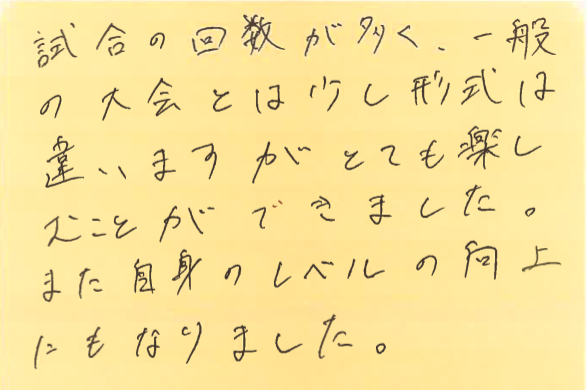 試合の回数が多く、一般
の大会とは少し形式は
違いますがとても楽し
むことができました。
また自身のレベルの向上
にもなりました。